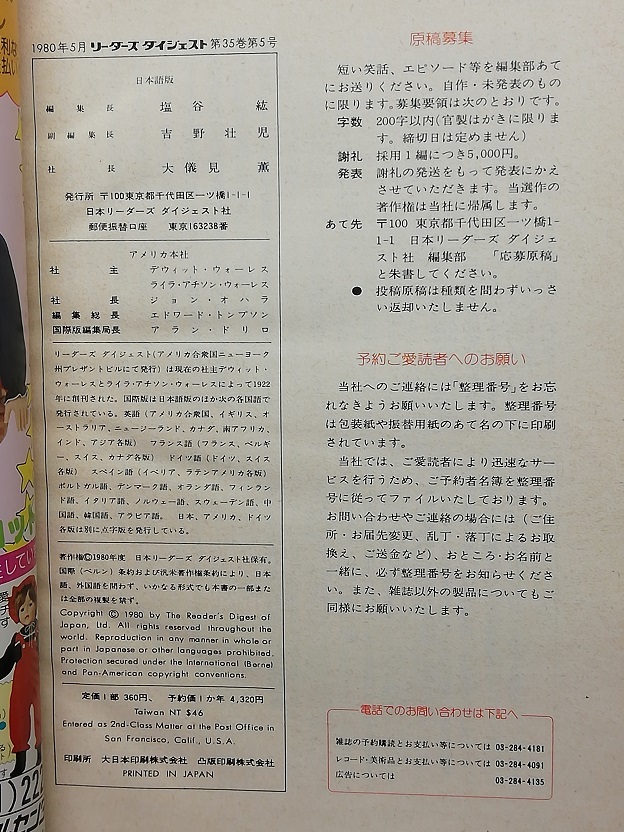 1980年5月 リーダーズ ダイジェスト 第35巻第5号
日本語版
編集長 塩谷 紘
副編集長 吉野壮児
社長 大儀見 薫
発行所 〒100東京都千代田区一ツ橋1-1-1
日本リーダーズ ダイジェスト社
郵便振替口座 東京163238番
アメリカ本社
社主 デウィット・ウォーレス
ライラ・アチソン・ウォーレス
社長 ジョン・オハラ
編集総長 エドワード・トンプソン
国際版編集局長 アラン・ドリロ
リーダーズ ダイジェスト(アメリカ合衆国ニューヨーク
州プレザントビルにて発行)は現在の社主デウィット・
ウォーレスとライラ・アチソン・ウォーレスによって1922
年に創刊された。国際版は日本語版のほか次の各国語で
発行されている。英語(アメリカ合衆国、イギリス、オ
ーストラリア、ニュージーランド、カナダ、南アフリカ、
インド、アジア各版) フランス語(フランス、ベルギ
ー、スイス、カナダ各版) ドイツ語(ドイツ、スイス
各版) スペイン語(イベリア、ラテンアメリカ各版)
ポルトガル語、デンマーク語、オランダ語、フィンラン
ド語、イタリア語、ノルウェー語、スウェーデン語、中
国語、韓国語、アラビア語。 日本、アメリカ、ドイツ
各版は別に点字版を発行している。
著作権©1980年度 日本リーダーズ ダイジェスト社保有。
国際(ベルン)条約および汎米著作権条約により、日本
語、外国語を問わず、いかなる形式でも本書の一部また
は全部の複製を禁ず。
Copyright © 1980 by The Reader's Digest of
Japan, Ltd. All rights reserved throughout the
world. Reproduction in any manner in whole or
part in Japanese or other languages prohibited.
Protection secured under the International (Berne)
and Pan-American copyright conventions.
定価1部 360円、 予約価1か年 4,320円
Taiwan NT $46
Entered as 2nd-Class Matter at the Post Office in
San Francisco, Calif., U.S.A.
印刷所 大日本印刷株式会社 凸版印刷株式会社
PRINTED IN JAPAN
原稿募集
短い笑話、エピソード等を編集部あて
にお送りください。自作・未発表のもの
に限ります。募集要領は次のとおりです。
字数 200字以内(官製はがきに限りま
す。締切日は定めません)
謝礼 採用1編につき5,000円。
発表 謝礼の発送をもって発表にかえ
させていただきます。当選作の
著作権は当社に帰属します。
あて先 〒100 東京都千代田区一ツ橋1-
1-1 日本リーダーズ ダイジェ
スト社 編集部 「応募原稿」
と朱書してください。
● 投稿原稿は種類を問わずいっさ
い返却いたしません。
予約ご愛読者へのお願い
当社へのご連絡には「整理番号」をお忘
れなきようお願いいたします。整理番号
は包装紙や振替用紙のあて名の下に印刷
されています。
当社では、ご愛読者により迅速なサー
ビスを行うため、ご予約者名簿を整理番
号に従ってファイルいたしております。
お問い合わせやご連絡の場合には(ご住
所・お届先変更、乱丁・落丁によるお取
換え、ご送金など)、おところ・お名前と
一緒に、必ず整理番号をお知らせくださ
い。また、雑誌以外の製品についてもご
同様にお願いいたします。
電話でのお問い合わせは下記へ
雑誌の予約購読とお支払い等については 03-284-4181
レコード・美術品とお支払い等については 03-284-4091
広告については 03-284-4135